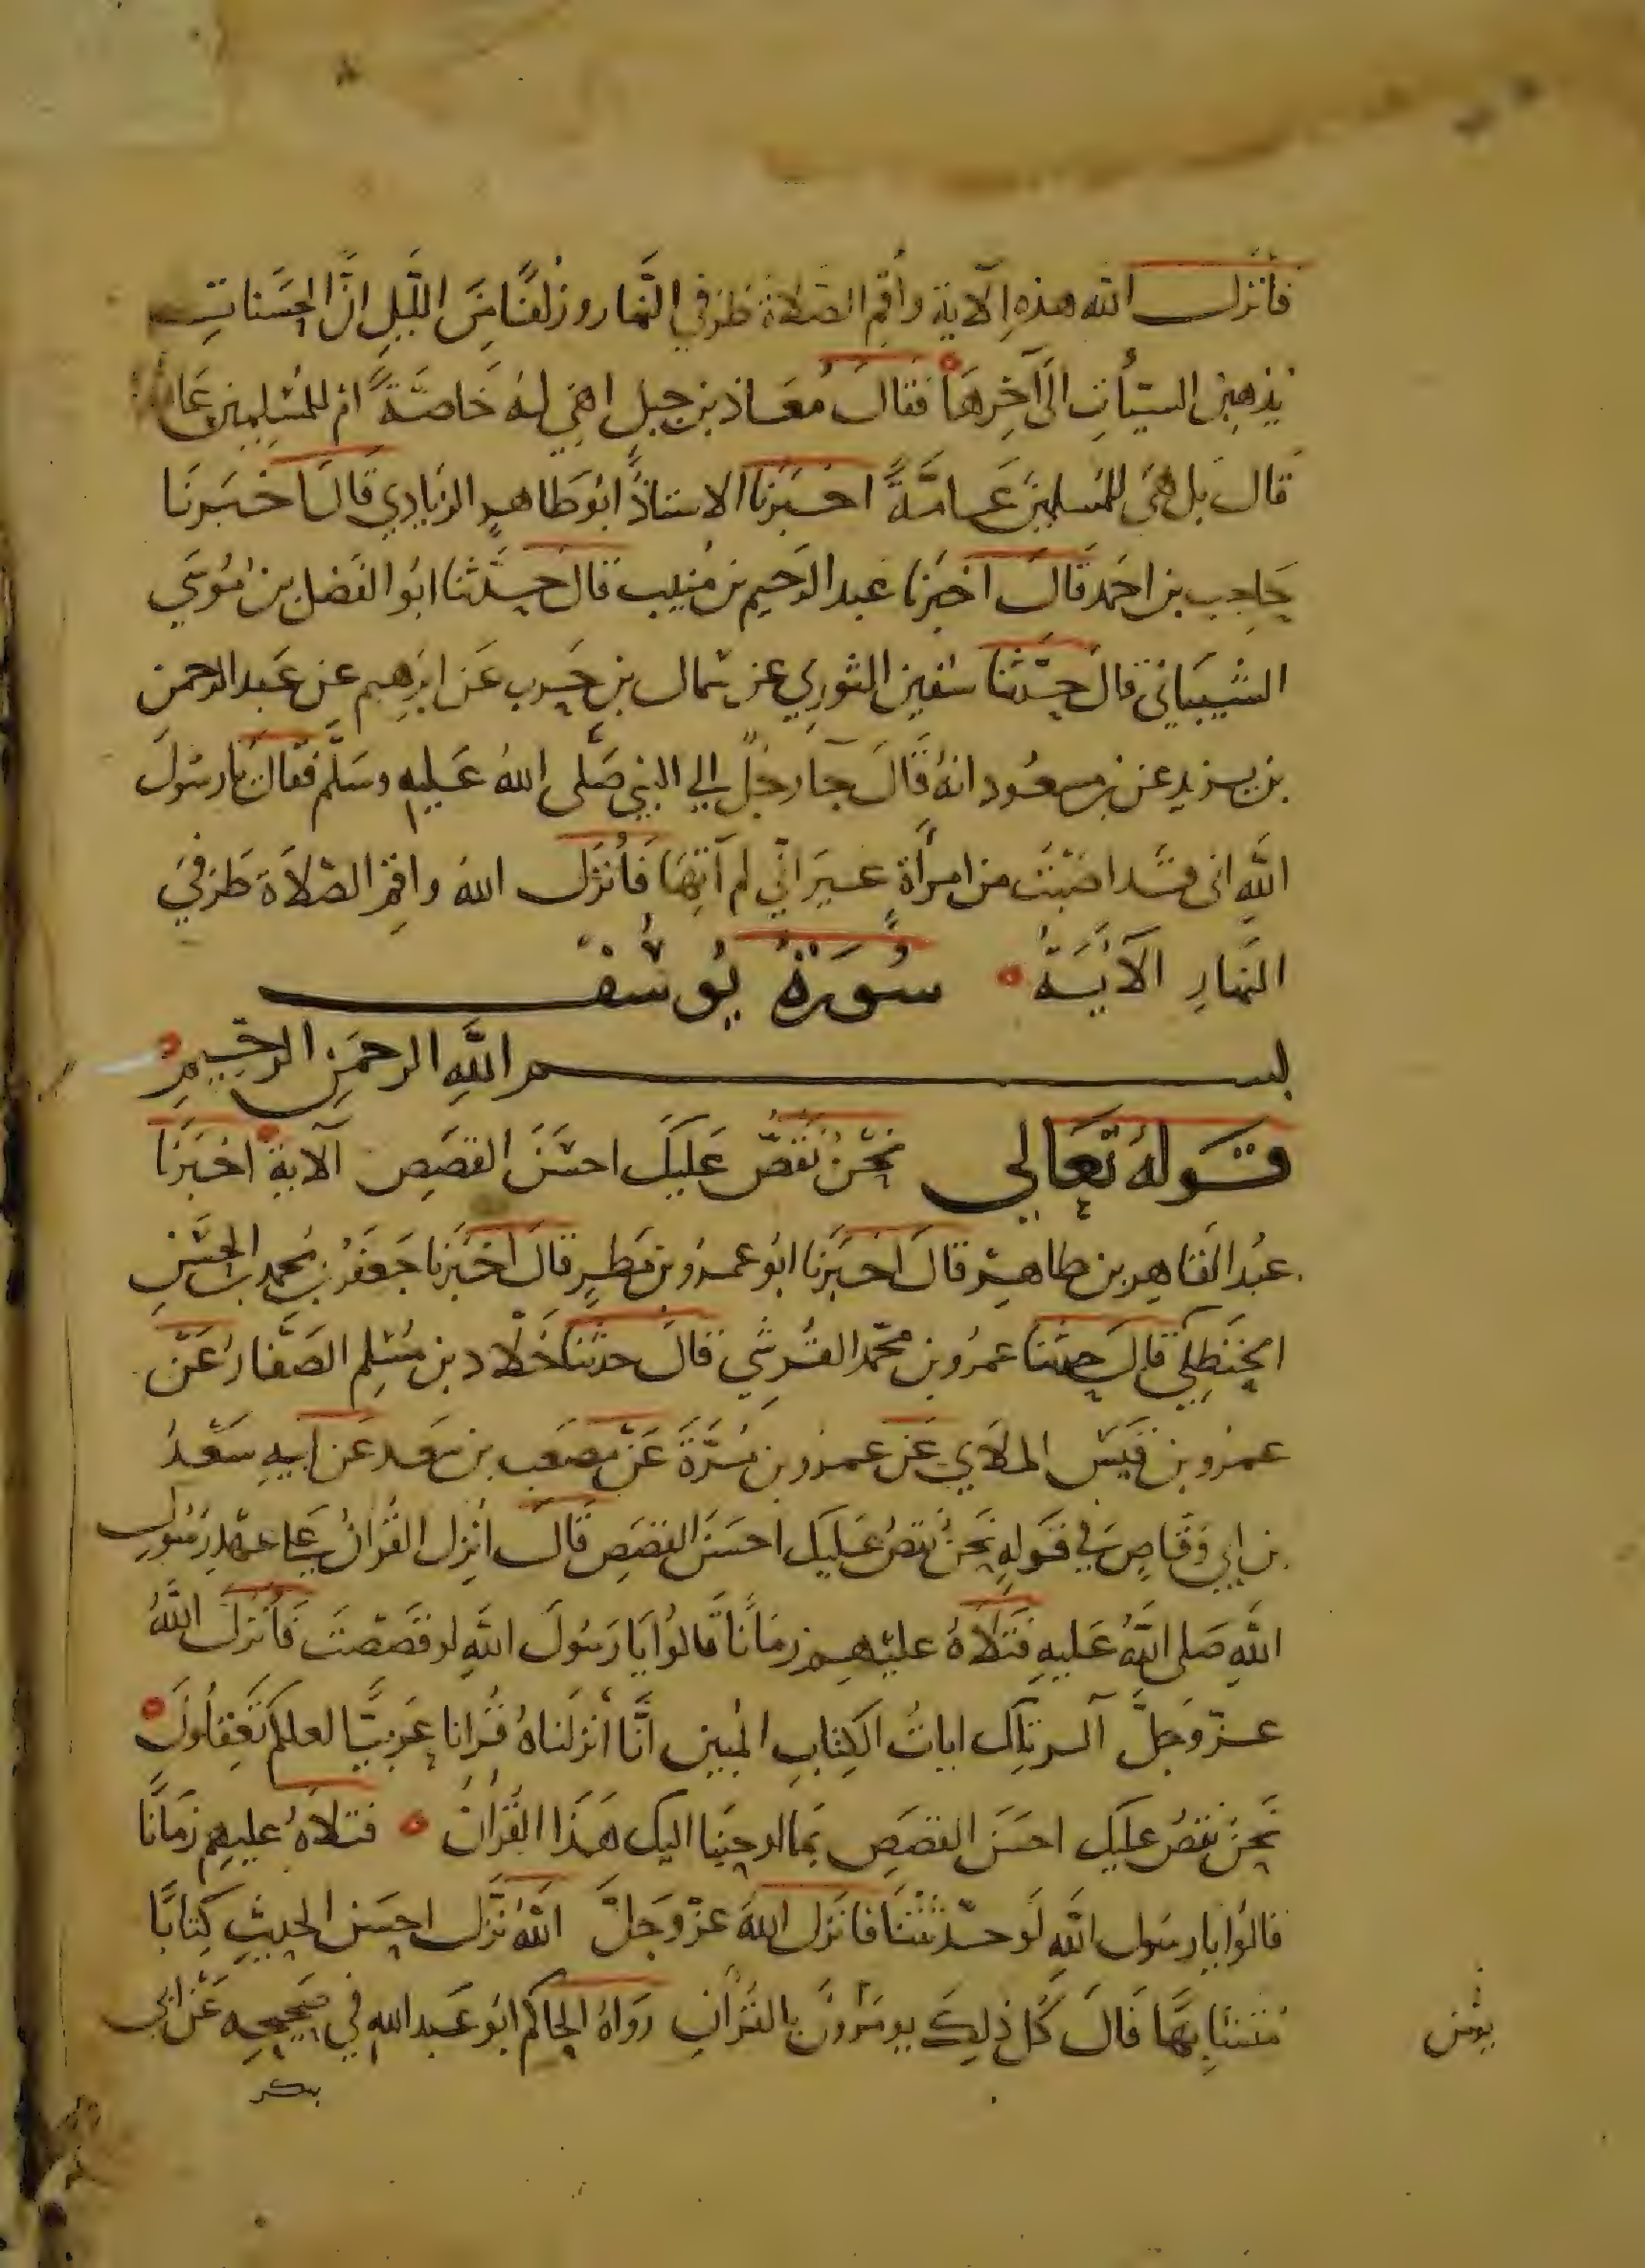 فأنزل الله هذه الآية وأقم الصلاة طرفي النهار وزلفًا من الليل إنّ الحسنات
يذهبن السيئات إلى آخرها فقال معاذ بن جبل اهي له خاصّةً ام للمسلمين
قال بل هي للمسلمين عامّةً اخبرنا الاستاذ ابو طاهر الزيادي قال اخبرنا
حاجب بن احمد قال اخبرنا عبد الرحيم بن منيب قال حدّثنا ابو الفضل بن موسي
الشيباني قال حدّثنا سفين الثوري عن سمال بن حرب عن ابرهيم عن عبد الرحمن
بن يزيد عن بن مسعود انه قال جا رجل إلي النبي صلى الله عليه وسلّم فقال يا رسول
الله انى قد اصبت من امرأة غير انّي لم آتها فأنزل الله واقم الصّلاة طرفي
النهار الآية سورة يوسف
بسم الله الرحمن الرحيم
قوله تعالي نحن نقصّ عليك احسن القصص الآية اخبرنا
عبد القاهر بن طاهر قال اخبرنا ابو عمرو بن مطر قال اخبرنا جعفر بن محمد بن الحسن
الحنظلي قال حدثنا عمرو بن محمّد القرشي قال حدثنا خلاد بن مسلم الصفار عن
عمرو بن قيس الملاي عن عمرو بن مرّة عن مصعب بن سعد عن ابيه سعد
بن ابي وقاص في قوله نحن نقص عليك احسن القصص قال انزل القران على عهد رسول
الله صلى الله عليه فتلاه عليهم زمانًا قالوا يا رسول الله لو قصصت فأنزل الله
عزّ وجلّ الر تلك ايات الكتاب المبين انّا أنزلناه قرانا عربيّا لعلكم تعقلون
نحن نقص عليك احسن القصص بما اوحينا اليك هذا القران فتلاه عليهم زمانًا
قالوا يا رسول الله لو حدّثتنا فانزل الله عزّ وجلّ الله نزّل احسن الحديث كتابًا
متشابهًا قال كل ذلك يومرون بالقرآن رواه الحاكم ابو عبد الله في صحيحه عن ابي
بكر